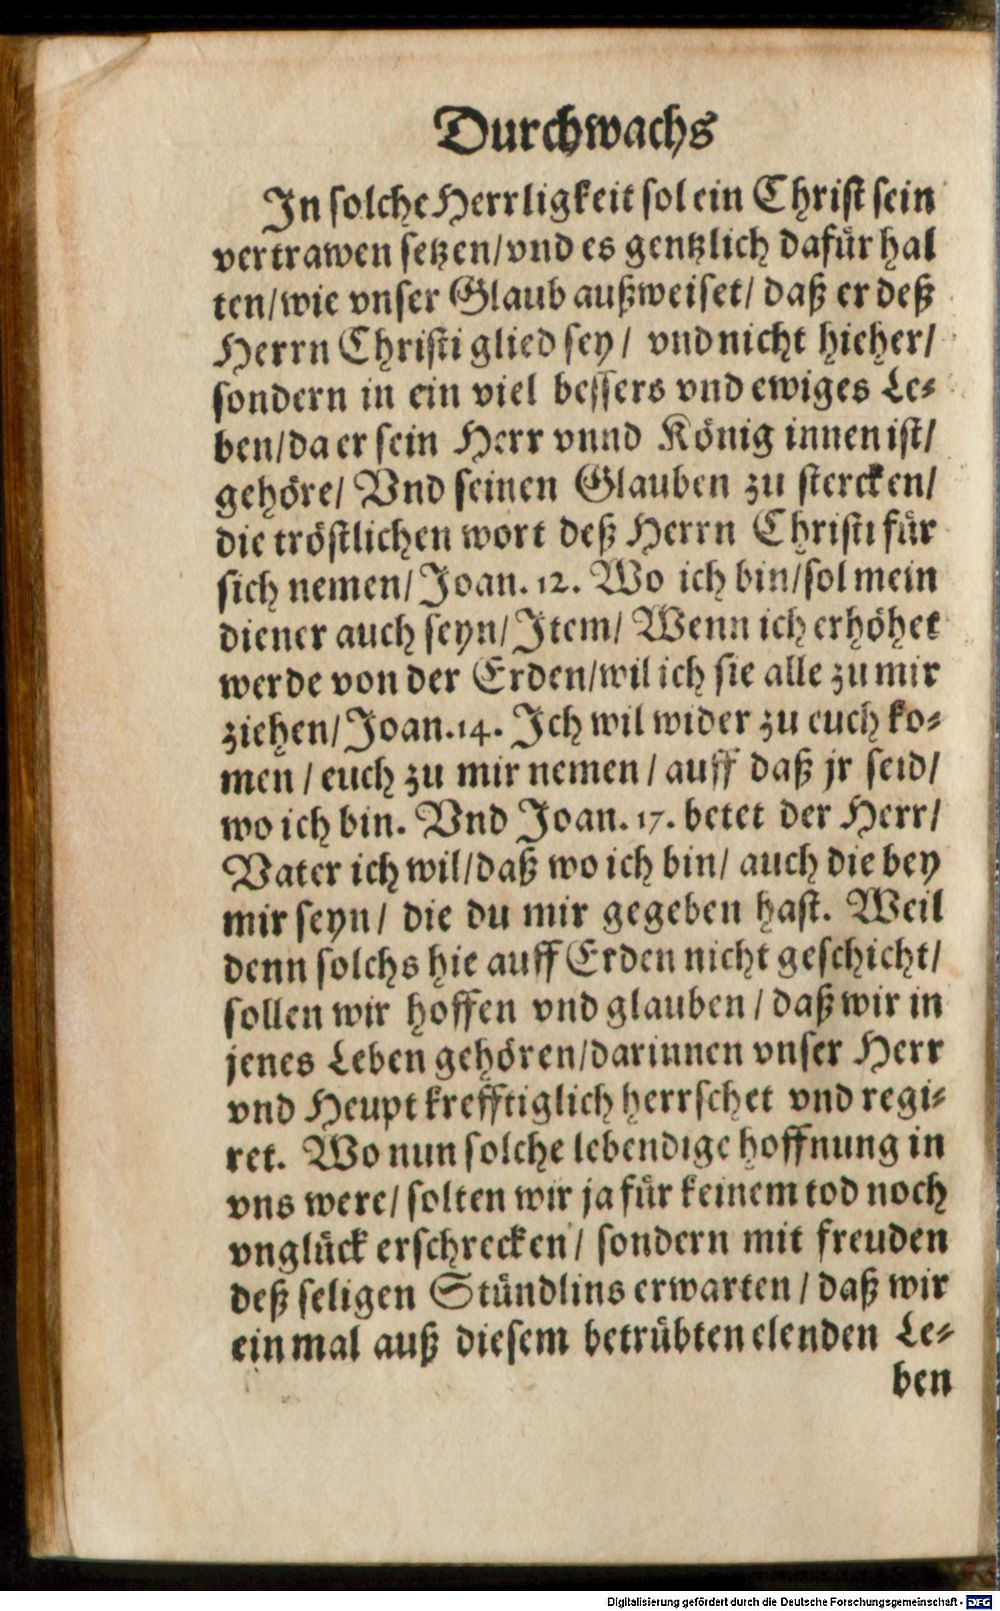 Durchwachs
In solche Herrligkeit sol ein Christ sein
vertrawen setzen/ vnd es gentzlich dafür hal
ten/ wie vnser Glaub außweiset/ daß er deß
Herrn Christi glied sey/ vnd nicht hieher/
sondern in ein viel bessers vnd ewiges Le-
ben/ da er sein Herr vnnd König innen ist/
gehöre/ Vnd seinen Glauben zu stercken/
die tröstlichen wort deß Herrn Christi für
sich nemen/ Joan. 12. Wo ich bin/ sol mein
diener auch seyn/ Item/ Wenn ich erhöhet
werde von der Erden/ wil ich sie alle zu mir
ziehen/ Joan. 14. Ich wil wider zu euch ko-
men/ euch zu mir nemen/ auff daß jr seid/
wo ich bin. Vnd Joan. 17. betet der Herr/
Vater ich wil/ daß wo ich bin/ auch die bey
mir seyn/ die du mir gegeben hast. Weil
denn solchs hie auff Erden nicht geschicht/
sollen wir hoffen vnd glauben/ daß wir in
jenes Leben gehören/ darinnen vnser Herr
vnd Heupt krefftiglich herrschet vnd regi-
ret. Wo nun solche lebendige hoffnung in
vns were/ solten wir ja für keinem tod noch
vnglück erschrecken/ sondern mit freuden
deß seligen Stündlins erwarten/ daß wir
ein mal auß diesem betrübten elenden Le-
ben
Digitalisierung gefördert durch die Deutsche Forschungsgemeinschaft - DFG